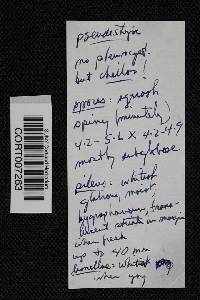 pseudostrja
no pleurocyst.
but cheilos!
spores: ynosh
spiny (minutely)
4.2-5.6 x 4.2-4.9
mostly subglobose
pileus: whitish
glabrous, moist
hygrophanous, trans-
lucent striate on margin
when fresh
up to 40 mm
lamellae: whitish
when yng
CORT007263